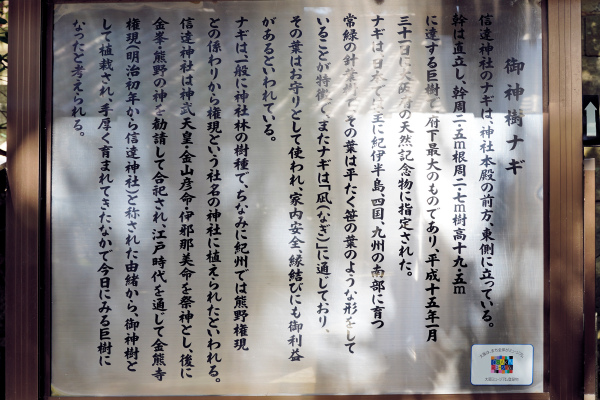 御神樹ナギ
信達神社のナギは、神社本殿の前方、東側に立っている。
幹は直立し、幹周二・五m根周二・七m樹高十九・五m
に達する巨樹で、府下最大のものであり、平成十五年一月
三十一日に大阪府の天然記念物に指定された。
ナギは日本では主に紀伊半島、四国、九州の南部に育つ
常緑の針葉樹で、その葉は平たく笹の葉のような形をして
いることが特徴で、またナギは「凪(なぎ)」に通じており、
その葉はお守りとして使われ、家内安全、縁結びにも御利益
があるといわれている。
ナギは一般に神社林の樹種で、ちなみに紀州では熊野権現
との係わりから権現という社名の神社に植えられたといわれる。
信達神社は神武天皇・金山彦命・伊邪那美命を祭神とし、後に
金峯・熊野の神を勧請して合祀され、江戸時代を通じて金熊寺
権現(明治初年から信達神社)と称された由緒から、御神樹と
して植栽され、手厚く育まれてきたなかで今日にみる巨樹に
なったと考えられる。